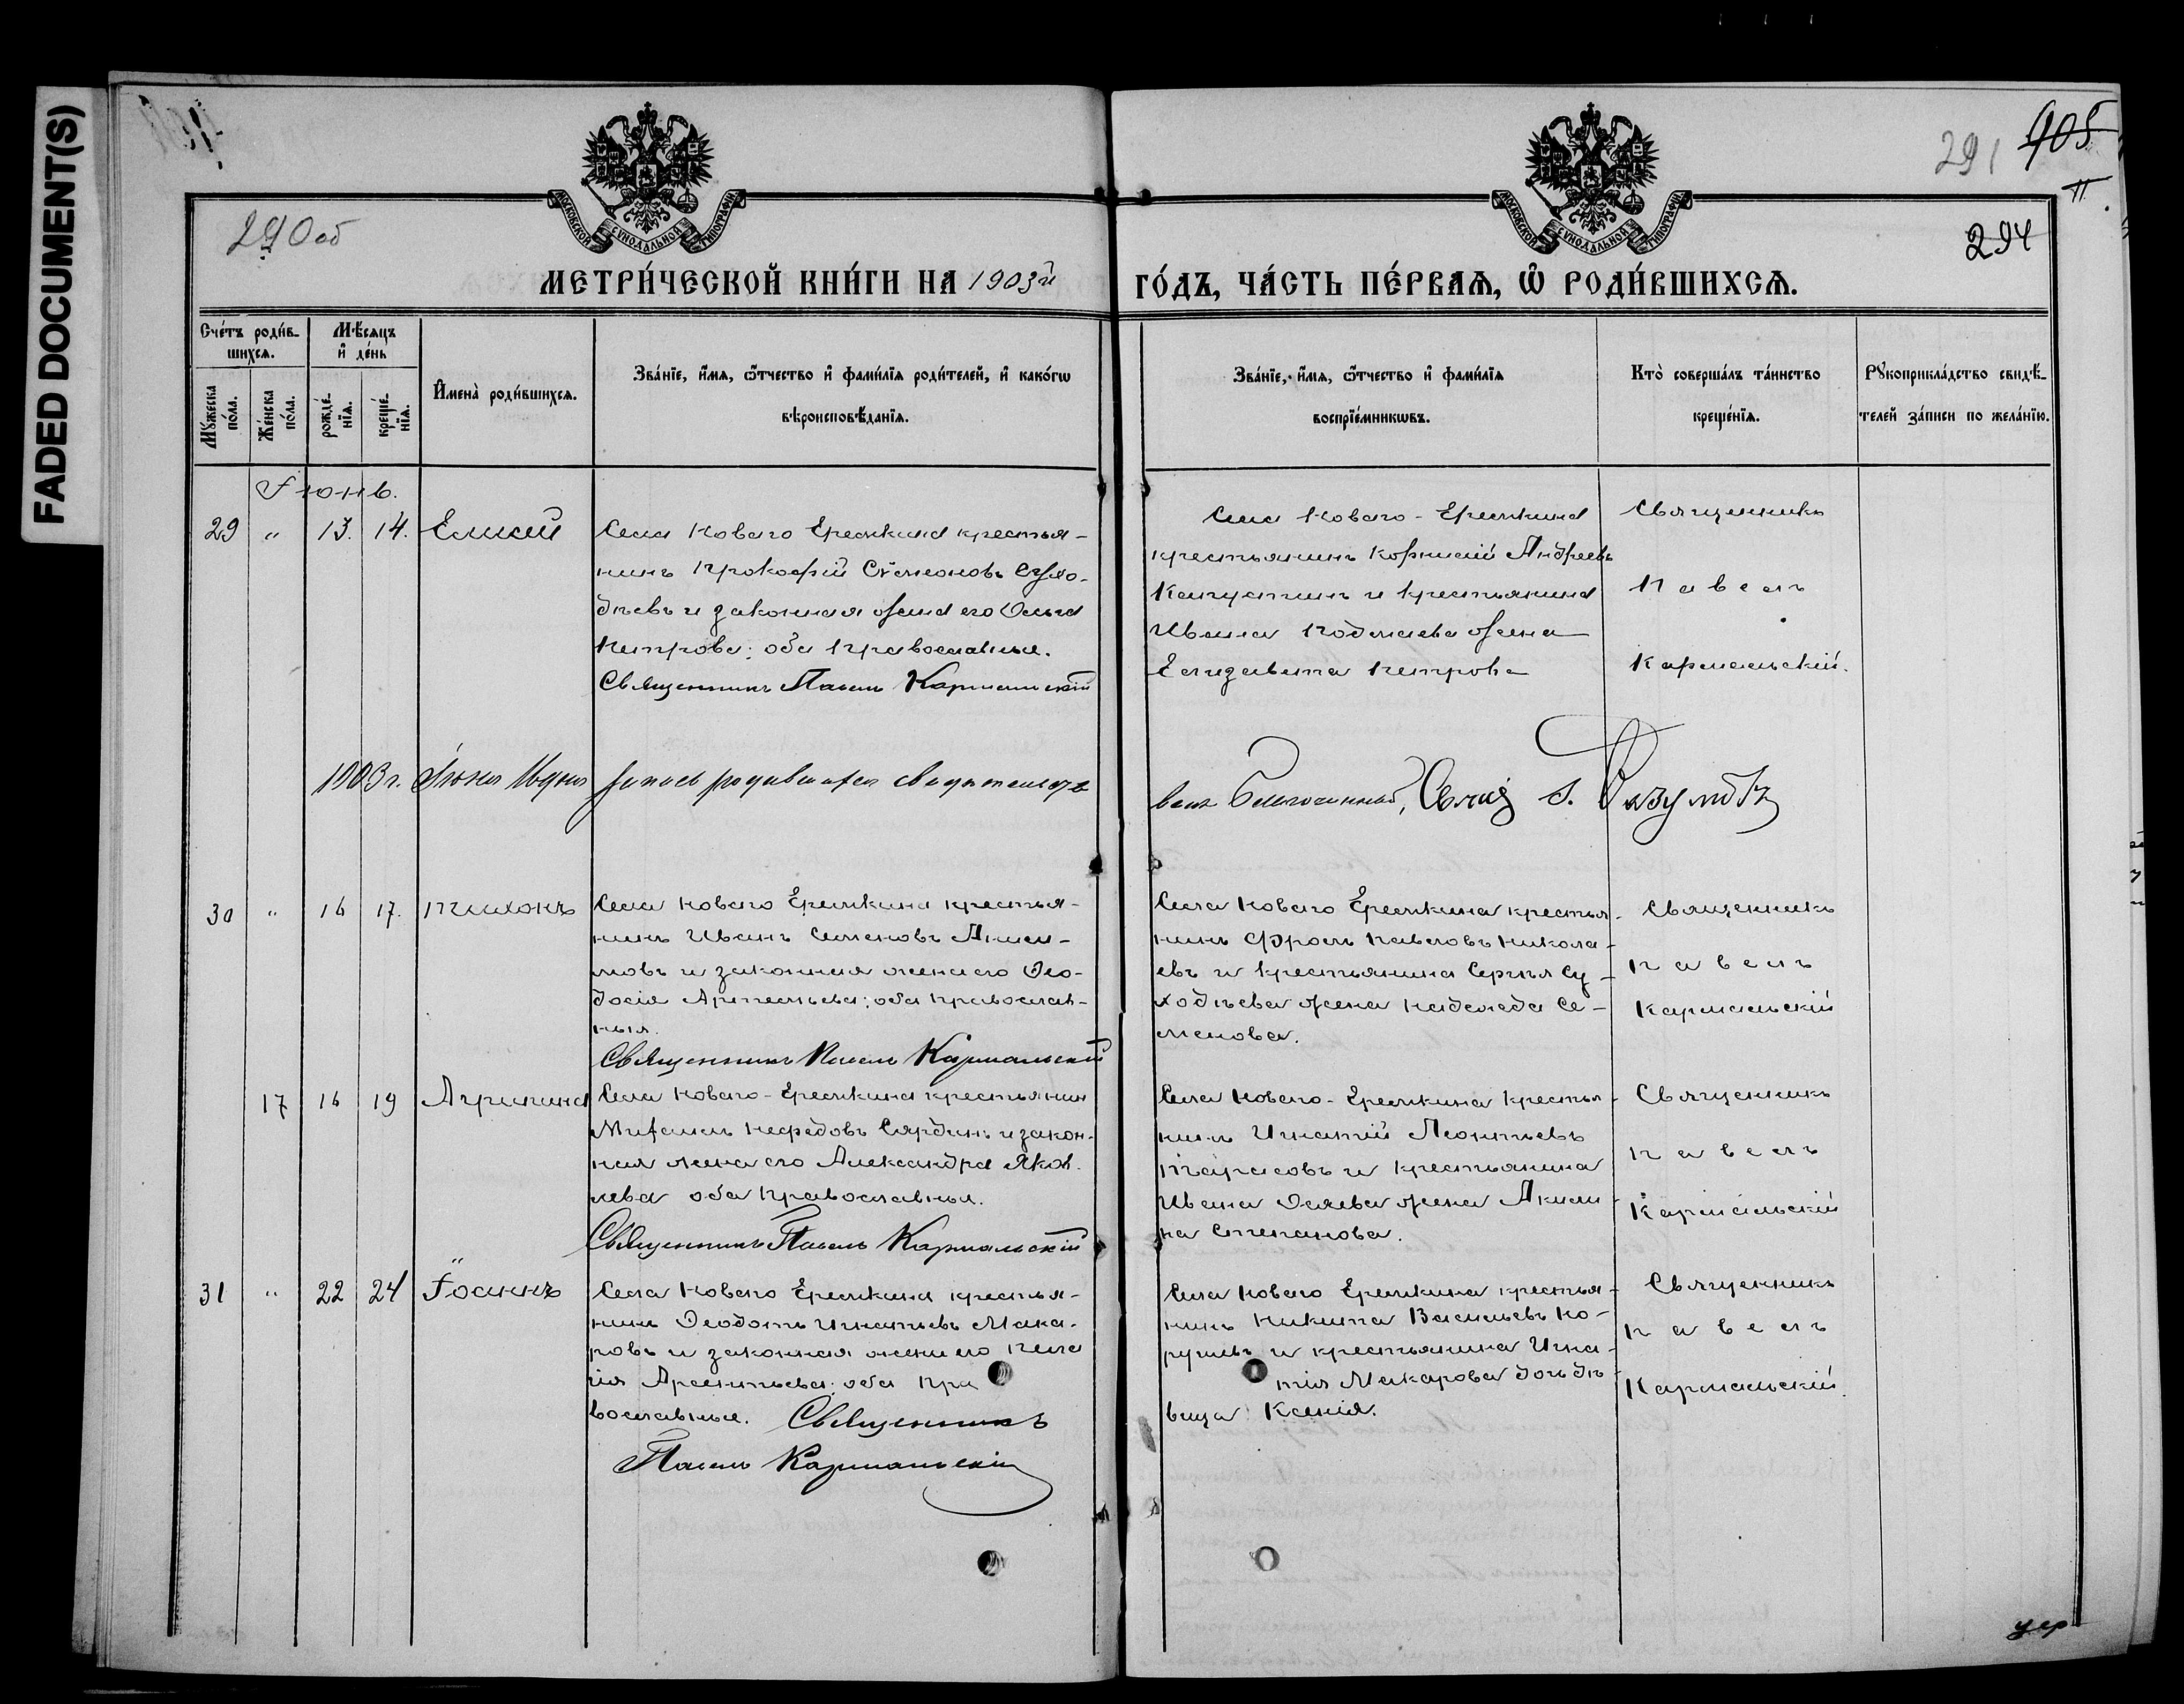 FADED DOCUMENT(S)
291
405
290об
294
МОСКОВСКОЙ СѴНОДАЛЬНОЙ ТИПОГРАФІИ.
МОСКОВСКОЙ СѴНОДАЛЬНОЙ ТИПОГРАФІИ.
МЕТРИ́ЧЕСКОЙ КНИ́ГИ НА 1903й ГО́ДЪ, ЧА́СТЬ ПЕ́РВАѦ, Ѽ РОДИ́ВШИХСѦ.
Сче́тъ роди́в-
шихсѧ.
Мѣ́сѧцъ
и҆ де́нь
Мꙋ́жеска по́ла.
Же́нска по́ла.
рожде́-нїѧ.
креще́-нїѧ.
И҆мена̀ роди́вшихсѧ.
Зва́нїе, и҆́мѧ, ѻ҆́тчество и҆ фами́лїѧ роди́телей, и҆ како́гѡ
вѣроисповѣ́данїѧ.
Зва́нїе, и҆́мѧ, ѻ҆́тчество и҆ фами́лїѧ
воспрїе́мникѡвъ.
Кто̀ соверша́лъ та́инство
креще́нїѧ.
Рꙋкоприкла́дство свидѣ́-
телей за́писи по жела́нїю.
Іюнь.
29 " 13. 14. Елисей
Села Новаго Еремкина крестья-
нинъ Прокофій Сѵмеоновъ Сухо-
дѣевъ и законная жена его Ольга
Петрова; оба православные.
Священникъ Павелъ Кармальскій
Села Новаго-Еремкина
крестьянинъ Корнилій Андреевъ
Капустинъ и крестьянина
Ивана жена
Елизавета Петрова
Священникъ
Павелъ
Кармальскій.
1903 г. Іюня дня запись родившихся свидѣтельство-
валъ Благочинный, Свящ.
30 " 16 17. Тихонъ
Села Новаго Еремкина крестья-
нинъ Иванъ Семеновъ Аки-
мовъ и законная жена его Ѳео-
досія Артемьева; оба православ-
ныя.
Священникъ Павелъ Кармальскій
Села Новаго Еремкина крестья-
нинъ Фролъ Павловъ Никола-
евъ и крестьянина Сергѣя Су-
ходѣева жена Надежда Се-
менова.
Священникъ
Павелъ
Кармальскій
17 16 19 Агрипина
Села Новаго-Еремкина крестьянинъ
Михаилъ Нефедовъ Сярдинъ и закон-
ная жена его Александра Яков-
лева оба православныя.
Священникъ Павелъ Кармальскій
Села Новаго-Еремкина крестья-
нинъ Игнатій Леонтьевъ
Тарасовъ и крестьянина
Ивана жена Акили-
на Степанова.
Священникъ
Павелъ
Кармальскій
31 " 22 24 Іоаннъ
Села Новаго Еремкина крестья-
нинъ Ѳеодотъ Игнатьевъ Мака-
ровъ и законная жена его Пела-
гія Арсентьева; оба пра-
вославные. Священникъ
Павелъ Кармальскій
Села Новаго Еремкина крестья-
нинъ Никита Васильевъ Ко-
и крестьянина Игна-
тія Макарова дочь дѣ-
вица Ксенія.
Священникъ
Павелъ
Кармальскій.